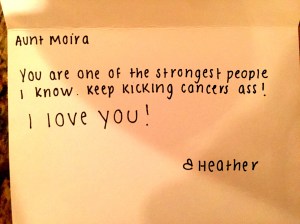 Aunt Moira
You are one of the strongest people
I know. Keep kicking cancers ass!
I love you!
Heather